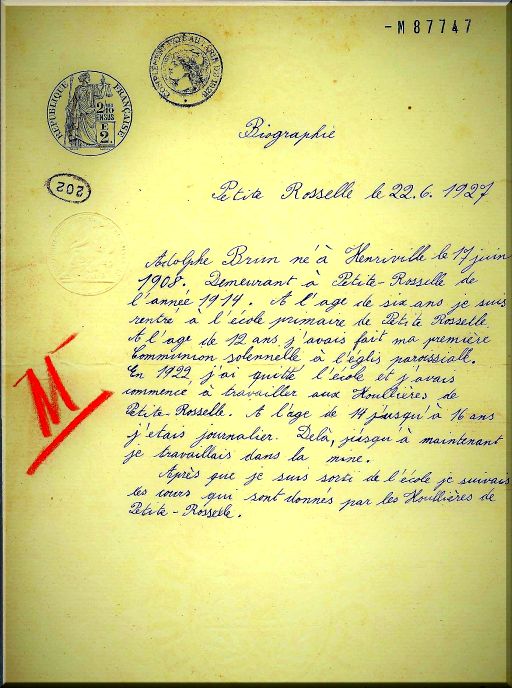 -M87747
RÉPUBLIQUE FRANÇAISE
2
EN SUS
E
2
202
Biographie
Petite Rosselle le 22.6. 1927
Adolphe Brun né à Henriville le 17 juin
1908. Demeurant à Petite-Rosselle de
l'année 1914. A l'age de six ans je suis
rentré à l'école primaire de Petite Rosselle
A l'age de 12 ans j'avais fait ma première
Communion solennelle à l'eglis paroissiall.
En 1922, j'ai quitté l'école et j'avais
commencé à travailler aux Houllières de
Petite-Rosselle. A l'âge de 14 jusqu'à 16 ans
j'etais journalier. Delà, jusqu'à maintenant
je travaillais dans la mine.
Après que je suis sorti de l'école je suivais
les cours qui sont donnés par les Houllières de
Petite-Rosselle.
M